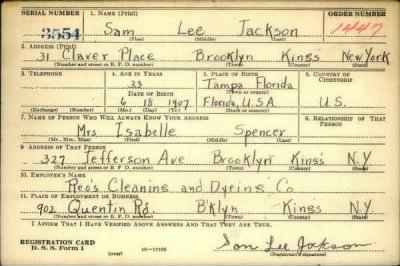 SERIAL NUMBER 1. NAME (Print) ORDER NUMBER
3554 Sam Lee Jackson 1447
(First) (Middle) (Last)
2. ADDRESS (Print)
31 Claver Place Brooklyn Kings New York
(Number and street or R. F. D. number) (Town) (County) (State)
3. TELEPHONE 4. AGE IN YEARS 5. PLACE OF BIRTH 6. COUNTRY OF CITIZENSHIP
33 Tampa Florida
DATE OF BIRTH (Town or county)
6 18 1907 Florida, U.S.A. U.S.
(Exchange) (Number) (Mo.) (Day) (Yr.) (State or country)
7. NAME OF PERSON WHO WILL ALWAYS KNOW YOUR ADDRESS 8. RELATIONSHIP OF THAT PERSON
Mrs Isabelle Spencer
(Mr., Mrs., Miss) (First) (Middle) (Last)
9. ADDRESS OF THAT PERSON
327 Jefferson Ave Brooklyn Kings N.Y
(Number and street or R. F. D. number) (Town) (County) (State)
10. EMPLOYER'S NAME
Reo's Cleaning and Dyeing Co
11. PLACE OF EMPLOYMENT OR BUSINESS
902 Quentin Rd. B'klyn Kings N.Y
(Number and street or R. F. D. number) (Town) (County) (State)
I AFFIRM THAT I HAVE VERIFIED ABOVE ANSWERS AND THAT THEY ARE TRUE.
REGISTRATION CARD
D. S. S. Form 1 (over) Son Lee Jakson
(Registrant's signature)